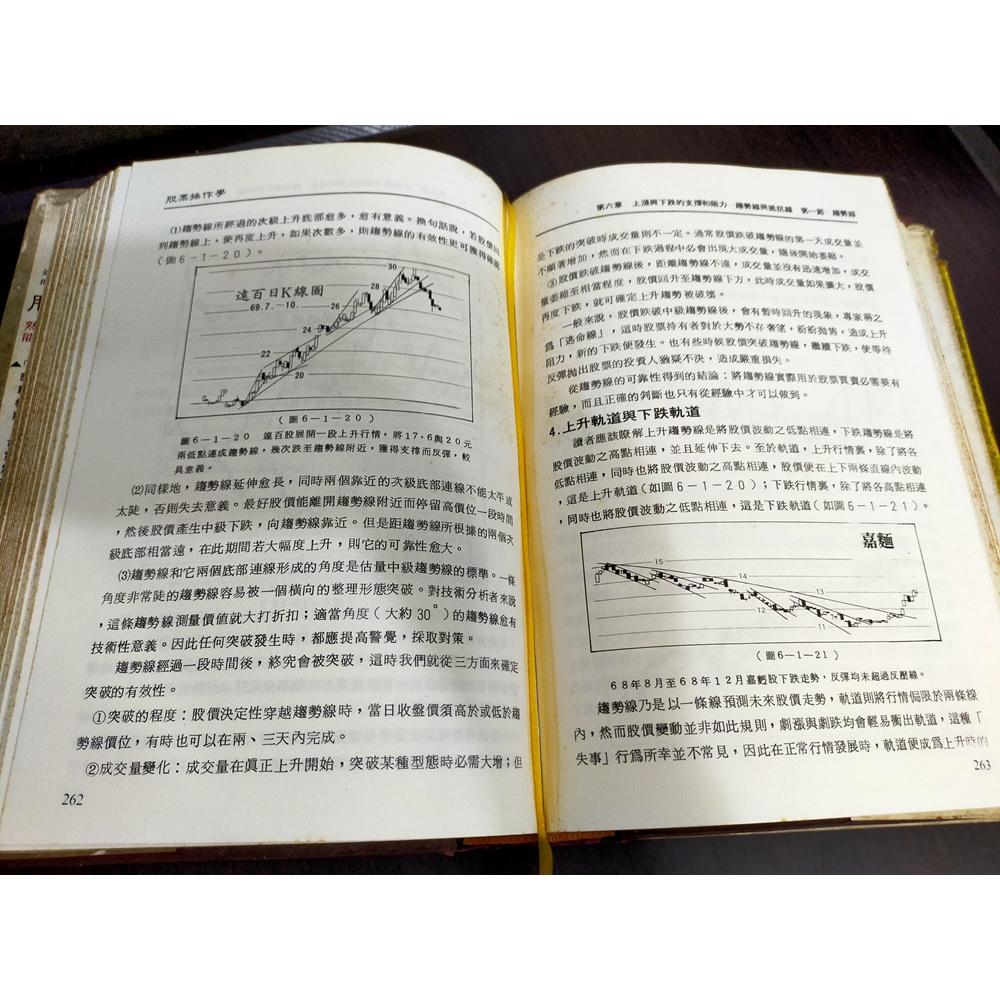 股票操作學
(1)趨勢線所經過的次級上升底部愈多,愈有意義。換句話說,若股價回
到趨勢線上,便再度上升,如果次數多,則趨勢線的有效性更可獲得確認
(圖6-1-20)。
遠百日K線圖
69.7.~10.
30
28
26
24
22
20
(圖6-1-20)
圖6-1-20 遠百股展開一段上升行情,將17.6與20元
兩低點連成趨勢線,幾次跌至趨勢線附近,獲得支撐而反彈,較
具意義。
(2)同樣地,趨勢線延伸愈長,同時兩個靠近的次級底部連線不能太平或
太陡,否則失去意義。最好股價能離開趨勢線附近而停留高價位一段時間
,然後股價產生中級下跌,向趨勢線靠近。但是距趨勢線所根據的兩個次
級底部相當遠,在此期間若大幅度上升,則它的可靠性愈大。
(3)趨勢線和它兩個底部連線形成的角度是估量中級趨勢線的標準。一條
角度非常陡的趨勢線容易被一個橫向的整理形態突破。對技術分析者來說
,這條趨勢線測量價值就大打折扣;適當角度(大約30°)的趨勢線愈有
技術性意義。因此任何突破發生時,都應提高警覺,採取對策。
趨勢線經過一段時間後,終究會被突破,這時我們就從三方面來確定
突破的有效性。
①突破的程度:股價決定性穿越趨勢線時,當日收盤價須高於或低於趨
勢線價位,有時也可以在兩、三天內完成。
②成交量變化:成交量在眞正上升開始,突破某種型態時必需大增;但
262
第六章 上漲與下跌的支撐和阻力 趨勢線與抵抗線 第一節 趨勢線
是下跌的突破時成交量則不一定。通常股價跌破趨勢線的第一天成交量並
不顯著增加,然而在下跌過程中必會出現大成交量,隨後開始萎縮。
③股價跌破趨勢線後,距離趨勢線不遠,成交量並沒有迅速增加,成交
量萎縮至相當程度,股價回升至趨勢線下方,此時成交量如果擴大,股價
再度下跌,就可確定上升趨勢被破壞。
一般來說,股價跌破中級趨勢線後,會有暫時回升的現象,專家稱之
爲「逃命線」,這時股票持有者對於大勢不存奢望,紛紛拋售,造成上升
阻力,新的下跌便發生。也有些時候股價突破趨勢線,繼續下跌,使等待
反彈拋出股票的投資人猶疑不決,造成嚴重損失。
從趨勢線的可靠性得到的結論:將趨勢線實際用於股票買賣必需要有
經驗,而且正確的判斷也只有從經驗中才可以做到。
4.上升軌道與下跌軌道
讀者應該瞭解上升趨勢線是將股價波動之低點相連,下跌趨勢線是將
股價波動之高點相連,並且延伸下去。至於軌道,上升行情裏,除了將各
低點相連,同時也將股價波動之高點相連,股價便在上下兩條直線內波動
,這是上升軌道(如圖6-1-20);下跌行情裏,除了將各高點相連
,同時也將股價波動之低點相連,這是下跌軌道(如圖6-1-21)。
嘉麵
15
14
13
12
11
(圖6-1-21)
68年8月至68年12月嘉麵股下跌走勢,反彈均未超過反壓線。
趨勢線乃是以一條線預測未來股價走勢,軌道則將行情侷限於兩條線
內,然而股價變動並非如此規則,劇漲與劇跌均會輕易衝出軌道,這種「
失事」行爲所幸並不常見,因此在正常行情發展時,軌道便成爲上升時的
263